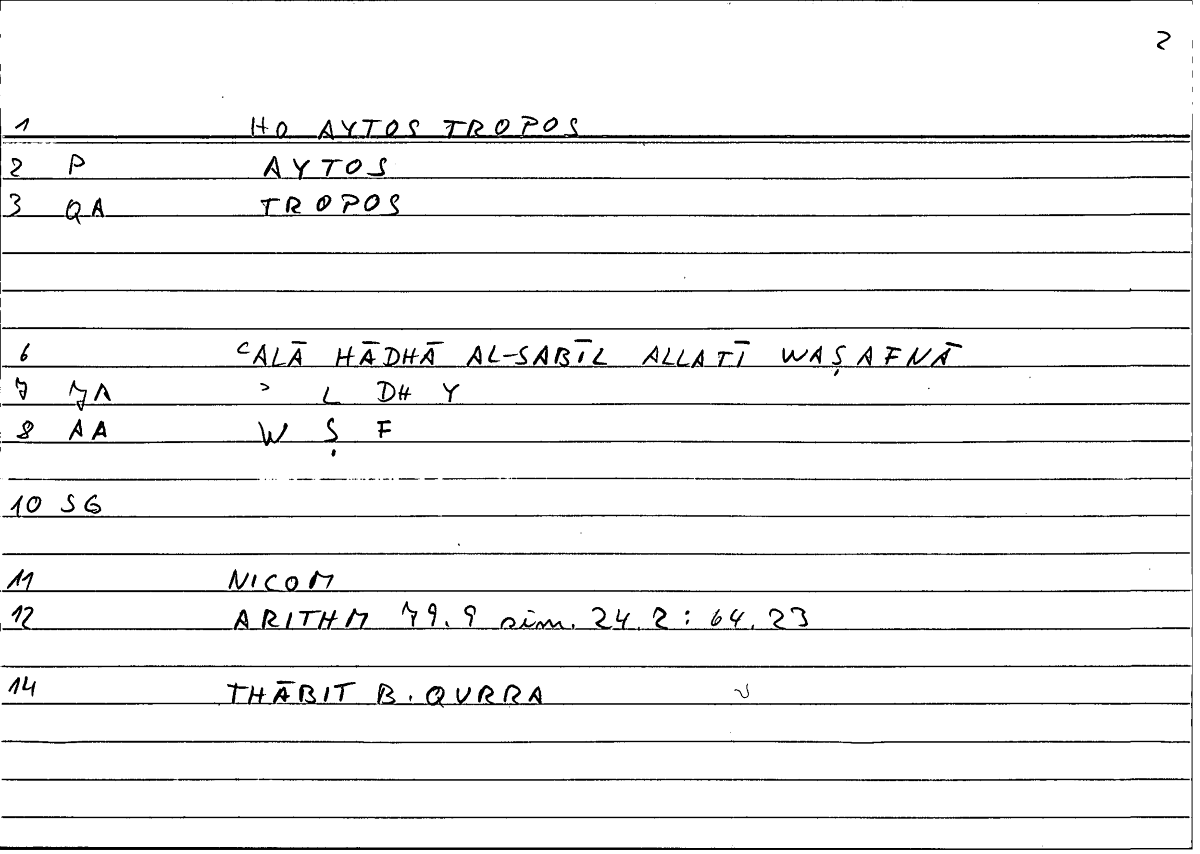 2
1 HO AYTOS TROPOS
2 P AYTOS
3 QA TROPOS
6 ᶜALĀ HĀDHĀ AL-SABĪL ALLATĪ WAṢAFNĀ
7 JA ʾ L DH Y
8 AA W Ṣ F
10 SG
11 NICOM
12 ARITHM 79.9 sim. 24.2 : 64.23
14 THĀBIT B. QURRA